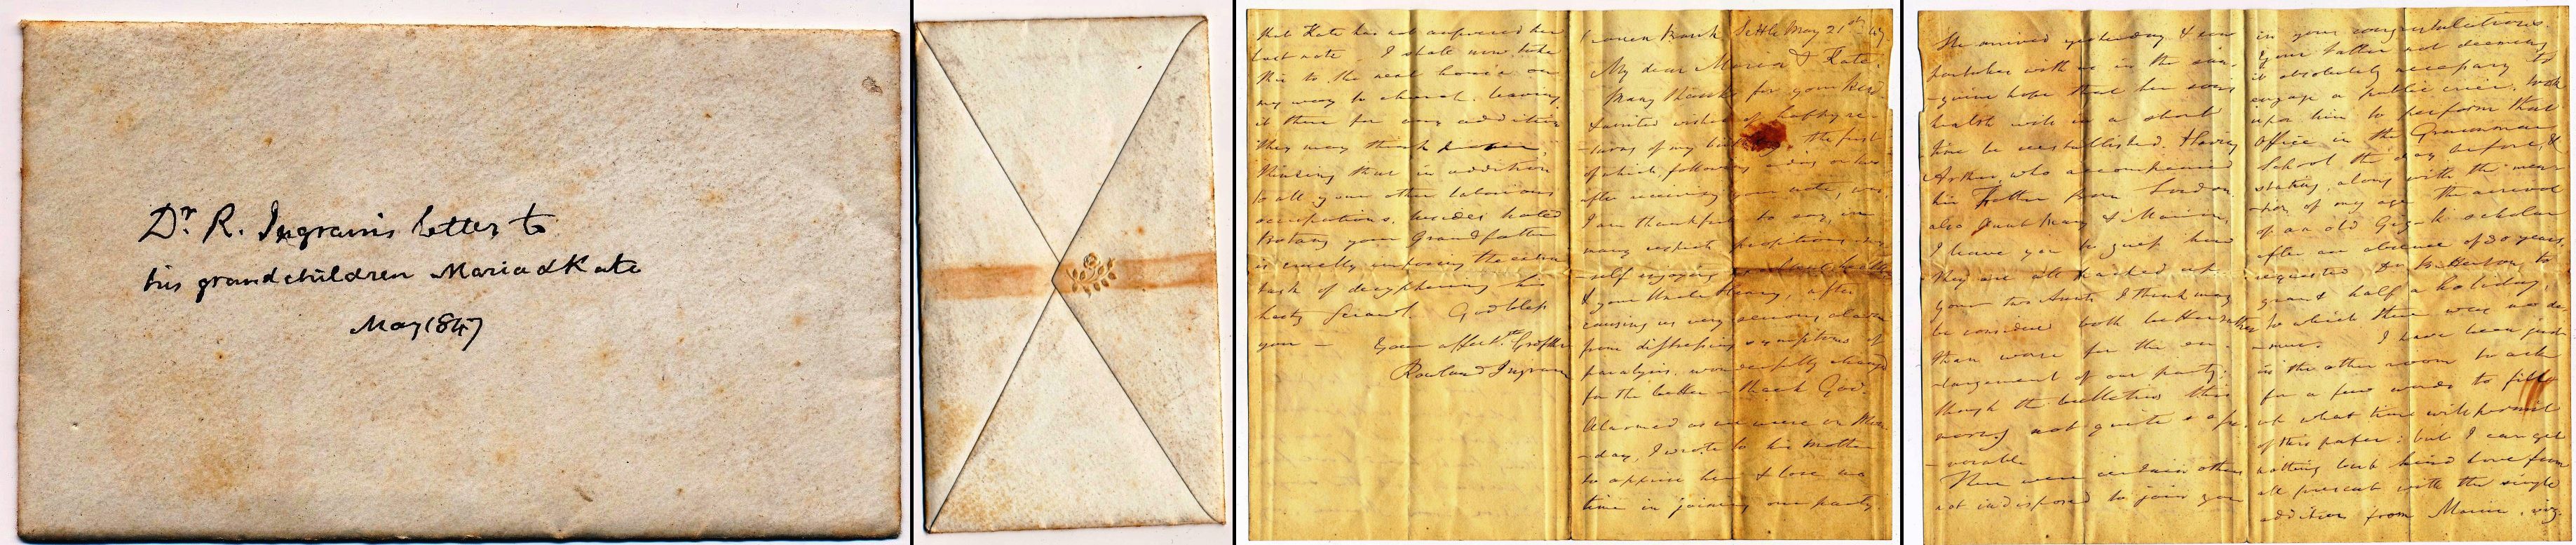 Dr. R. Ingram's letter to
his grandchildren Maria & Kate
May 1847
that Kate has not answered her
last note. I shall now take
this to the next house on
my way to church, leaving
it there for any addition
they may think proper,
thinking that in addition
to all your other laborious
occupations, besides hated
Botany your Grandfather
is cruelly imposing the extra
task of decyphering his
hasty scrawl. God bless
you — Your affect. Grdfthr
Rowland Ingram
Bank Settle May 21st 47
My dear Maria & Kate,
Many thanks for your kind
united wishes of happy re-
-turns of my birthday, the first
of which, following a day or two
after receiving your note, was,
I am thankful to say, in
many respects propitious, my
-self enjoying health
& your Uncle Henry, after
causing us very serious alarm
from distressing symptoms of
paralysis, wonderfully changed
for the better — thank God.
Alarmed as we were on Mon-
-day, I wrote to his mother
to apprise her & lose no
time in joining our party.
She arrived yesterday & now
partakes with us in the san-
-guine hope that her son's
health will in a short
time be reestablished. Having
Arthur, who accompanied
his Father from London
also Aunt Mary & Marian,
I leave you to guess how
they are all packed up.
your two Aunts I think may
be considered both better rather
than worse for the en-
-largement of our party;
though the bulletins this
morng not quite so fa-
-vorable
There were certain others
not indisposed to join you
in your congratulations,
your father not deeming
it absolutely necessary to
engage a public crier, took
upon him to perform that
office in the Grammar
School the day before, &
stating, along with the men-
-tion of my age the arrival
of an old Gigg. scholar
after an absence of 30 years,
requested Dr Butterton to
grant half a holiday,
to which there was no de-
-mur. I have been just
in the other room to ask
for a few words to fill
up what time will permit
of this paper: but I can get
nothing but kind love from
all present with the single
addition from Marian, viz.